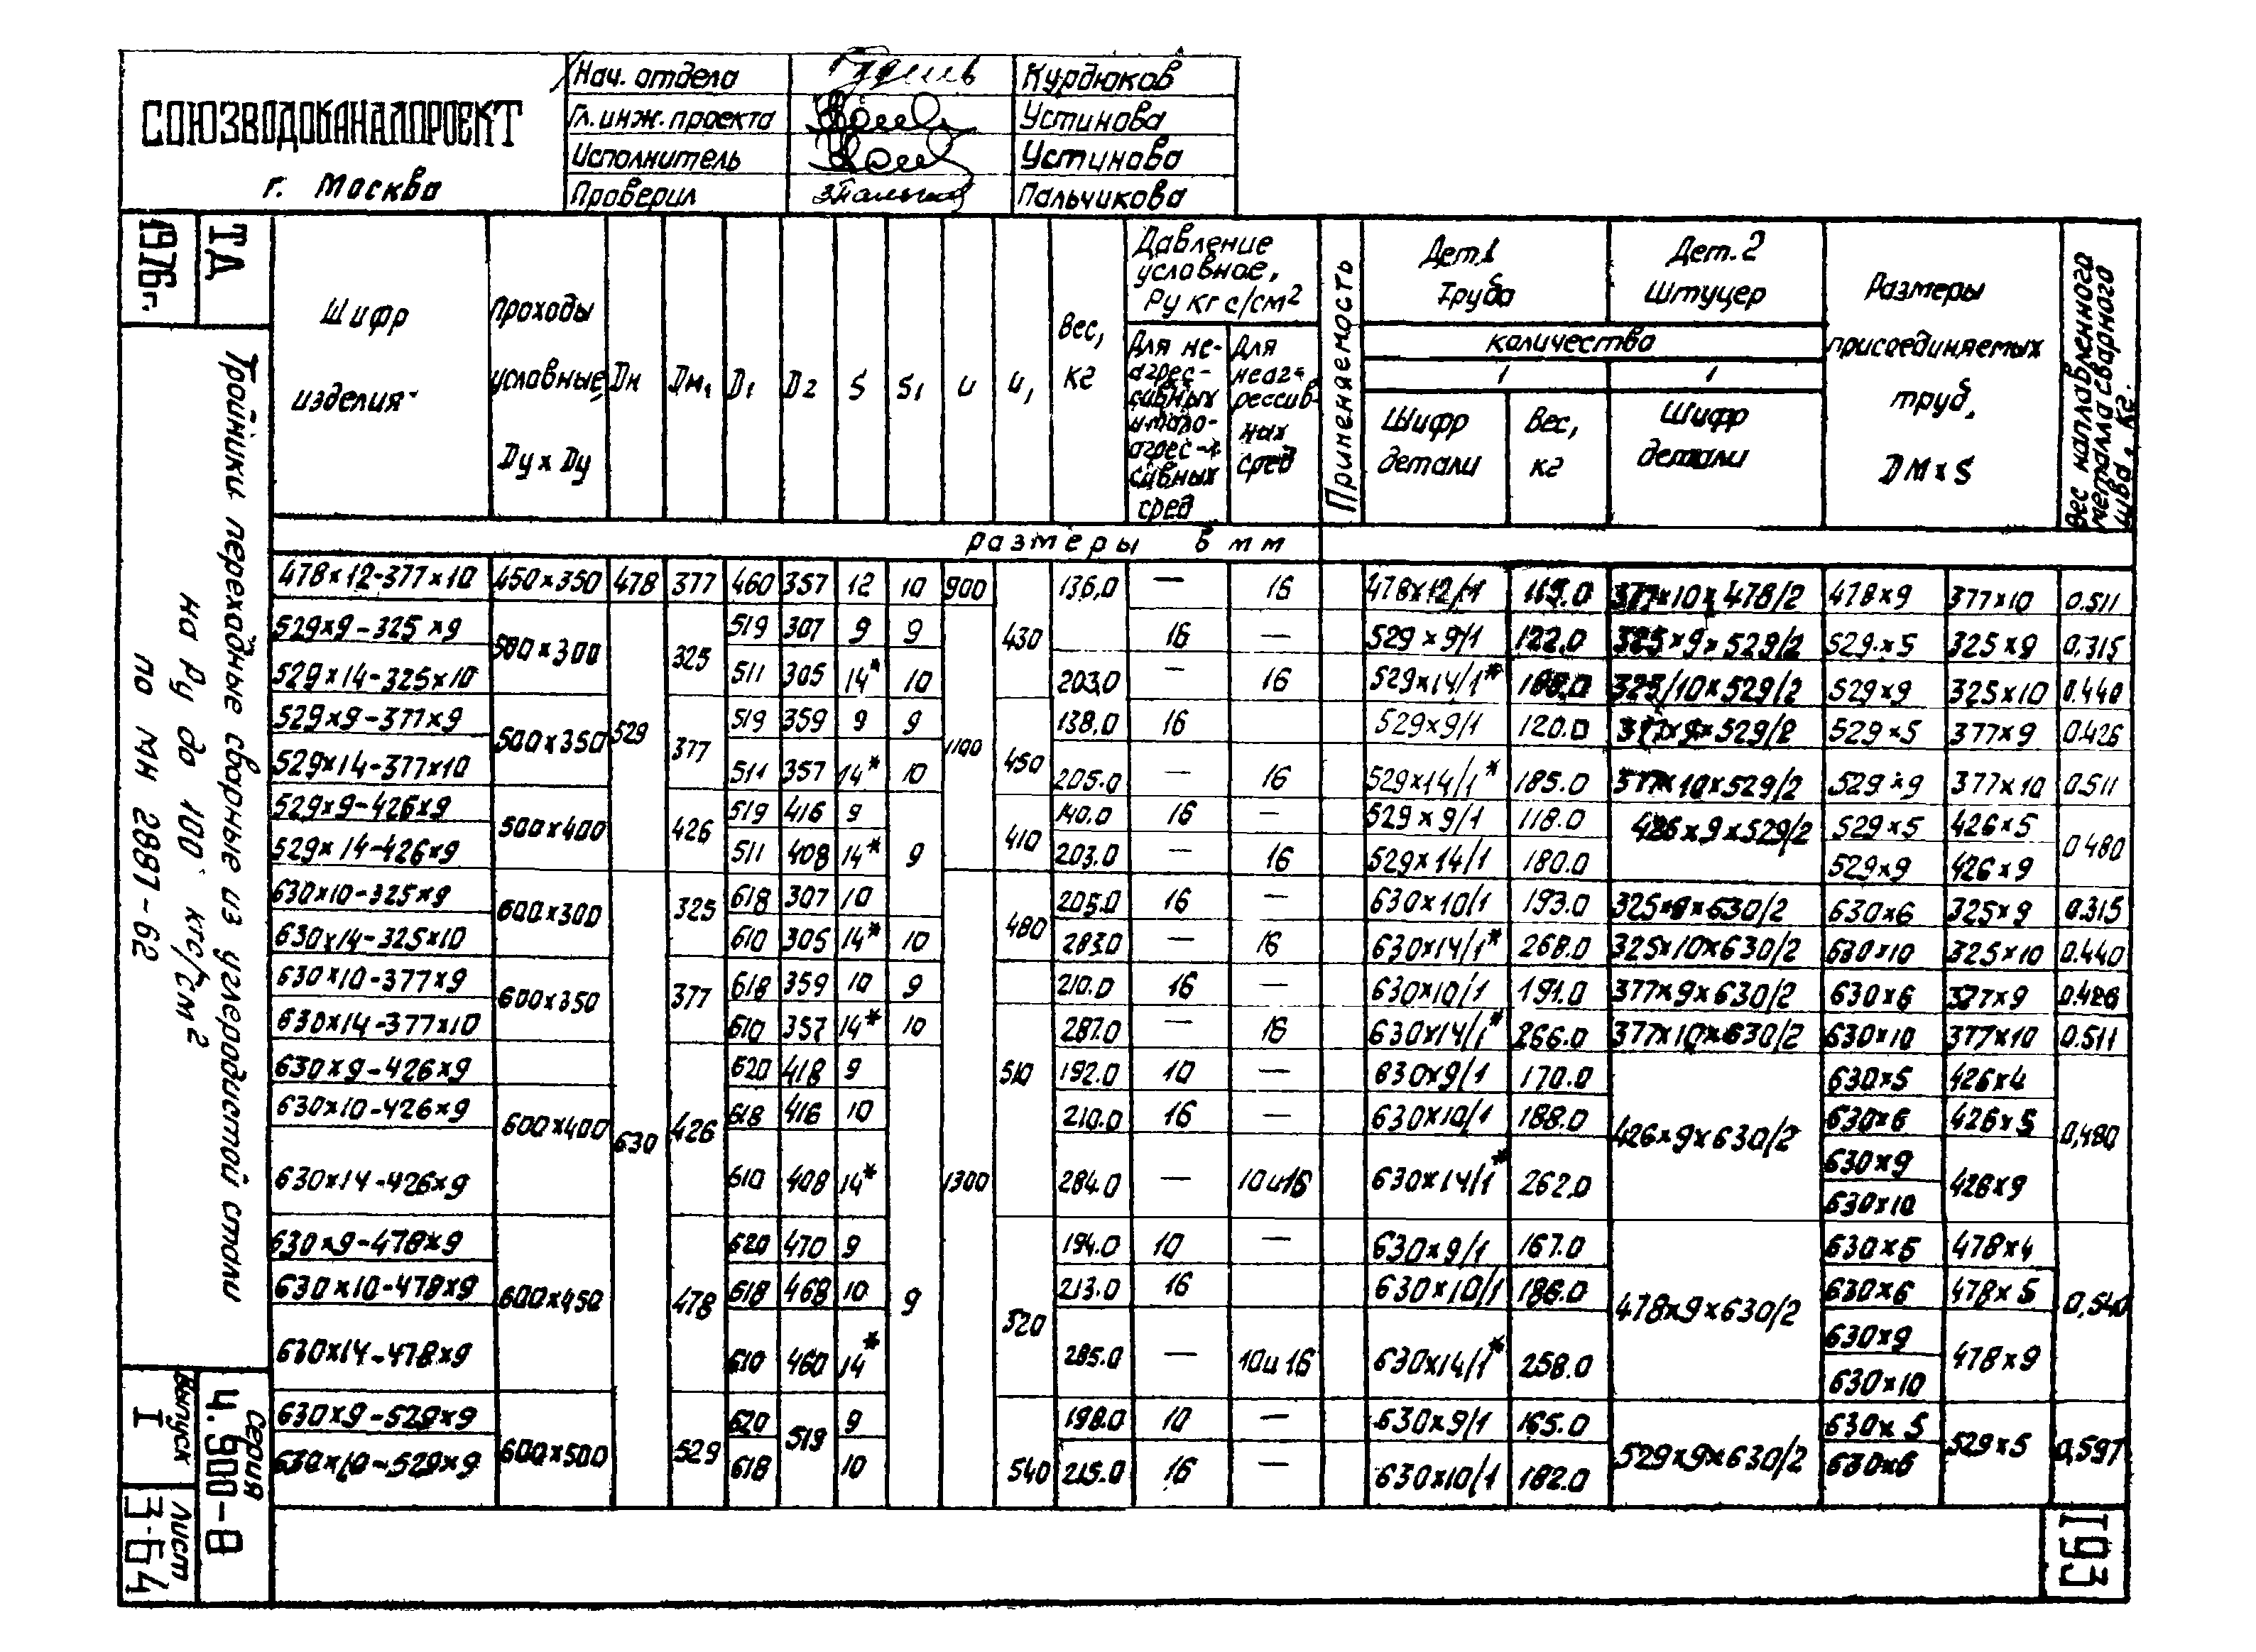 СОЮЗВОДОКАНАЛПРОЕКТ
г. Москва
Нач. отдела Курдюков
Гл. инж. проекта Устинова
Исполнитель Устинова
Проверил Пальчикова
ТД
1976г.
Тройники переходные сварные из углеродистой стали
на Ру до 100 кгс/см2
по МН 2887-62
Серия
4.900-8
Выпуск
I
Лист
3-64
Шифр изделия
Проходы условные, Dу x Dу
Dн
Dн1
D1
D2
S
S1
и
и1
Вес, кг
Давление условное, Ру кг с/см2
Для неагрессивных и малоагрессивных сред
Для неагрессивных сред
Применяемость
Дет.1 Труба
Дет.2 Штуцер
количество
1 1
Шифр детали
Вес, кг
Шифр детали
Размеры присоединяемых труб, DМxS
Вес наплавленного металла сварного шва, кг.
размеры в мм
478x12-377x10 450x350 478 377 460 357 12 10 900 136,0 — 16 478x12/1 377x10x478/2 478x9 377x10 0.511
529x9-325x9 500x300 325 519 307 9 9 430 16 — 529x9/1 122.0 325x9x529/2 529x5 325x9 0.315
529x14-325x10 511 305 14* 10 203.0 — 16 529x14/1* 325/10x529/2 529x9 325x10 0.440
529x9-377x9 500x350 529 377 519 359 9 9 1100 138.0 16 529x9/1 120.0 377x9x529/2 529x5 377x9 0.426
529x14-377x10 511 357 14* 10 450 205.0 — 16 529x14/1* 185.0 377x10x529/2 529x9 377x10 0.511
529x9-426x9 500x400 426 519 416 9 140.0 16 — 529x9/1 118.0 426x9x529/2 529x5 426x5
529x14-426x9 511 408 14* 9 410 203.0 — 16 529x14/1 180.0 529x9 426x9 0.480
630x10-325x9 600x300 325 618 307 10 205.0 16 — 630x10/1 193.0 325x9x630/2 630x6 325x9 0.315
630x14-325x10 610 305 14* 10 480 283.0 — 16 630x14/1* 268.0 325x10x630/2 630x10 325x10 0.440
630x10-377x9 600x350 377 618 359 10 9 210.0 16 — 630x10/1 191.0 377x9x630/2 630x6 377x9 0.426
630x14-377x10 610 357 14* 10 287.0 — 16 630x14/1* 266.0 377x10x630/2 630x10 377x10 0.511
630x9-426x9 620 418 9 510 192.0 10 — 630x9/1 170.0 630x5 426x4
630x10-426x9 600x400 630 426 618 416 10 210.0 16 — 630x10/1 188.0 426x9x630/2 630x6 426x5 0,480
630x14-426x9 610 408 14* 1300 284.0 — 10и16 630x14/1* 262.0 630x9 426x9
630x10
630x9-478x9 620 470 9 194.0 10 — 630x9/1 167.0 630x5 478x4
630x10-478x9 600x450 478 618 468 10 9 213.0 16 630x10/1 186.0 478x9x630/2 630x6 478x5 0,540
630x14-478x9 610 460 14* 520 285.0 — 10и16 630x14/1* 258.0 630x9 478x9
630x10
630x9-529x9 600x500 529 620 519 9 198.0 10 — 630x9/1 165.0 529x9x630/2 630x5 529x5 0,597
630x10-529x9 618 10 540 215.0 16 — 630x10/1 182.0 630x6
193